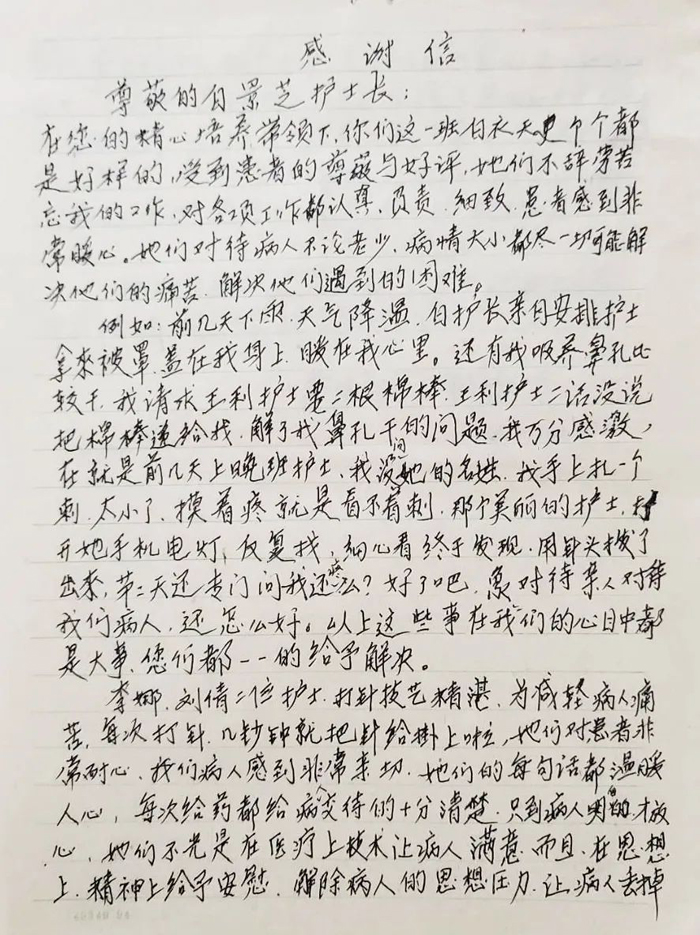 感谢信
尊敬的白景芝护士长:
在您的精心培养带领下,你们这一班白衣天使个个都
是好样的,受到患者的尊敬与好评,她们不辞劳苦
忘我的工作,对各项工作都认真,负责.细致.患者感到非
常暖心。她们对待病人不论老少、病情大小都尽一切可能解
决他们的痛苦.解决他们遇到的困难。
例如:前几天下雨.天气降温.白护长亲自安排护士
拿来被罩.盖在我身上.暖在我心里。还有我吸养鼻孔比
较干.我请求王利护士要二根棉棒.王利护士二话没说
把棉棒递给我.解了我鼻孔干的问题.我万分感激,
在就是前几天上晚班护士、我没问她的名姓.我手上扎一个
刺.太小了.摸着疼就是看不着刺.那个美丽的护士.打
开她手机电灯.反复找,细心看终于发现.用针头拨了
出来,第二天还专门问我还疼么?好了吧.象对待亲人对待
我们病人.还怎么好。以上这些事在我们的心目中都
是大事.您们都一一的给予解决。
李娜.刘倩二位护士.打针技艺精湛.为减轻病人痛
苦.每次打针.几秒钟就把针给掛上啦,她们对患者非
常耐心.我们病人感到非常亲切.她们的每句话都温暖
人心,每次给药都给病人交待的十分清楚.只到病人明白的.才放
心.她们不光是在医疗上技术让病人满意.而且.在思想
上.精神上给予安慰.解除病人的思想压力.让病人丢掉